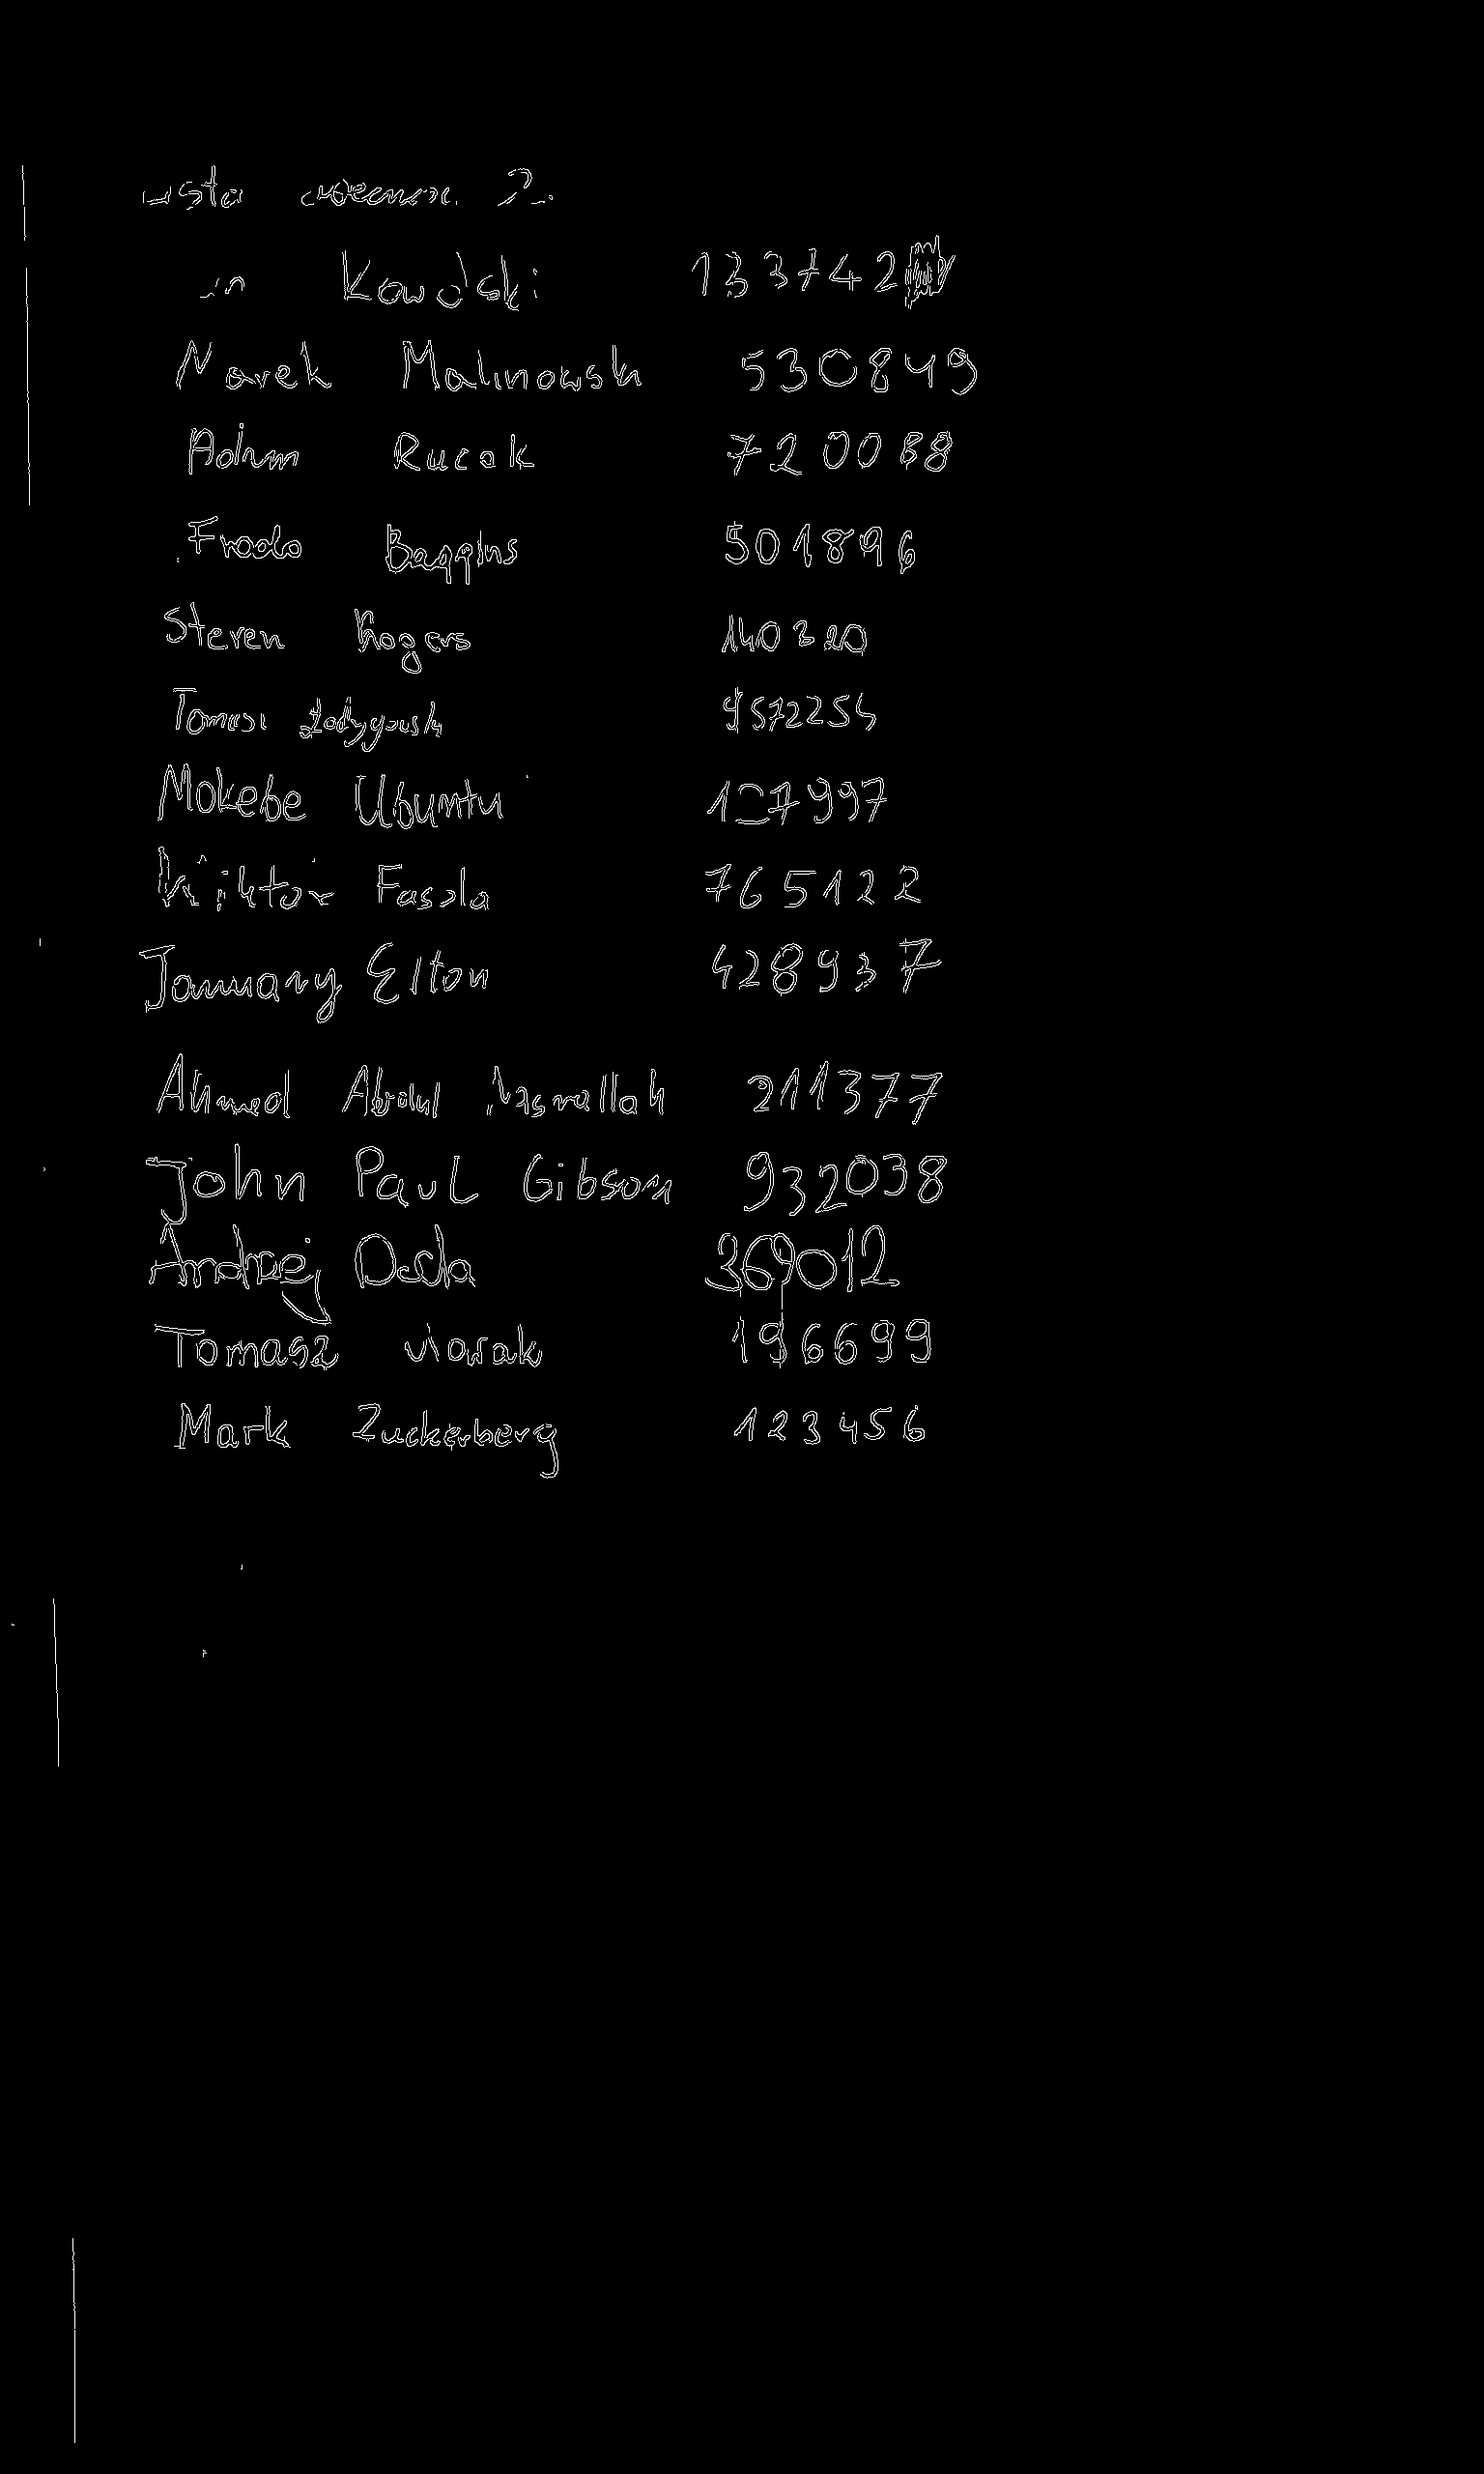 Kowalski 133742
Marek Malinowski 530849
Adam Rucak 720088
Frodo Baggins 501896
Steven Rogers 140320
Tomasz 572254
Mokebe Ubuntu 127997
Wiktor Fasola 765122
January Elton 428937
Ahmed Abdul Nasrallah 211377
John Paul Gibson 932038
Andrzej Duda 369012
Tomasz Nowak 196699
Mark Zuckerberg 123456